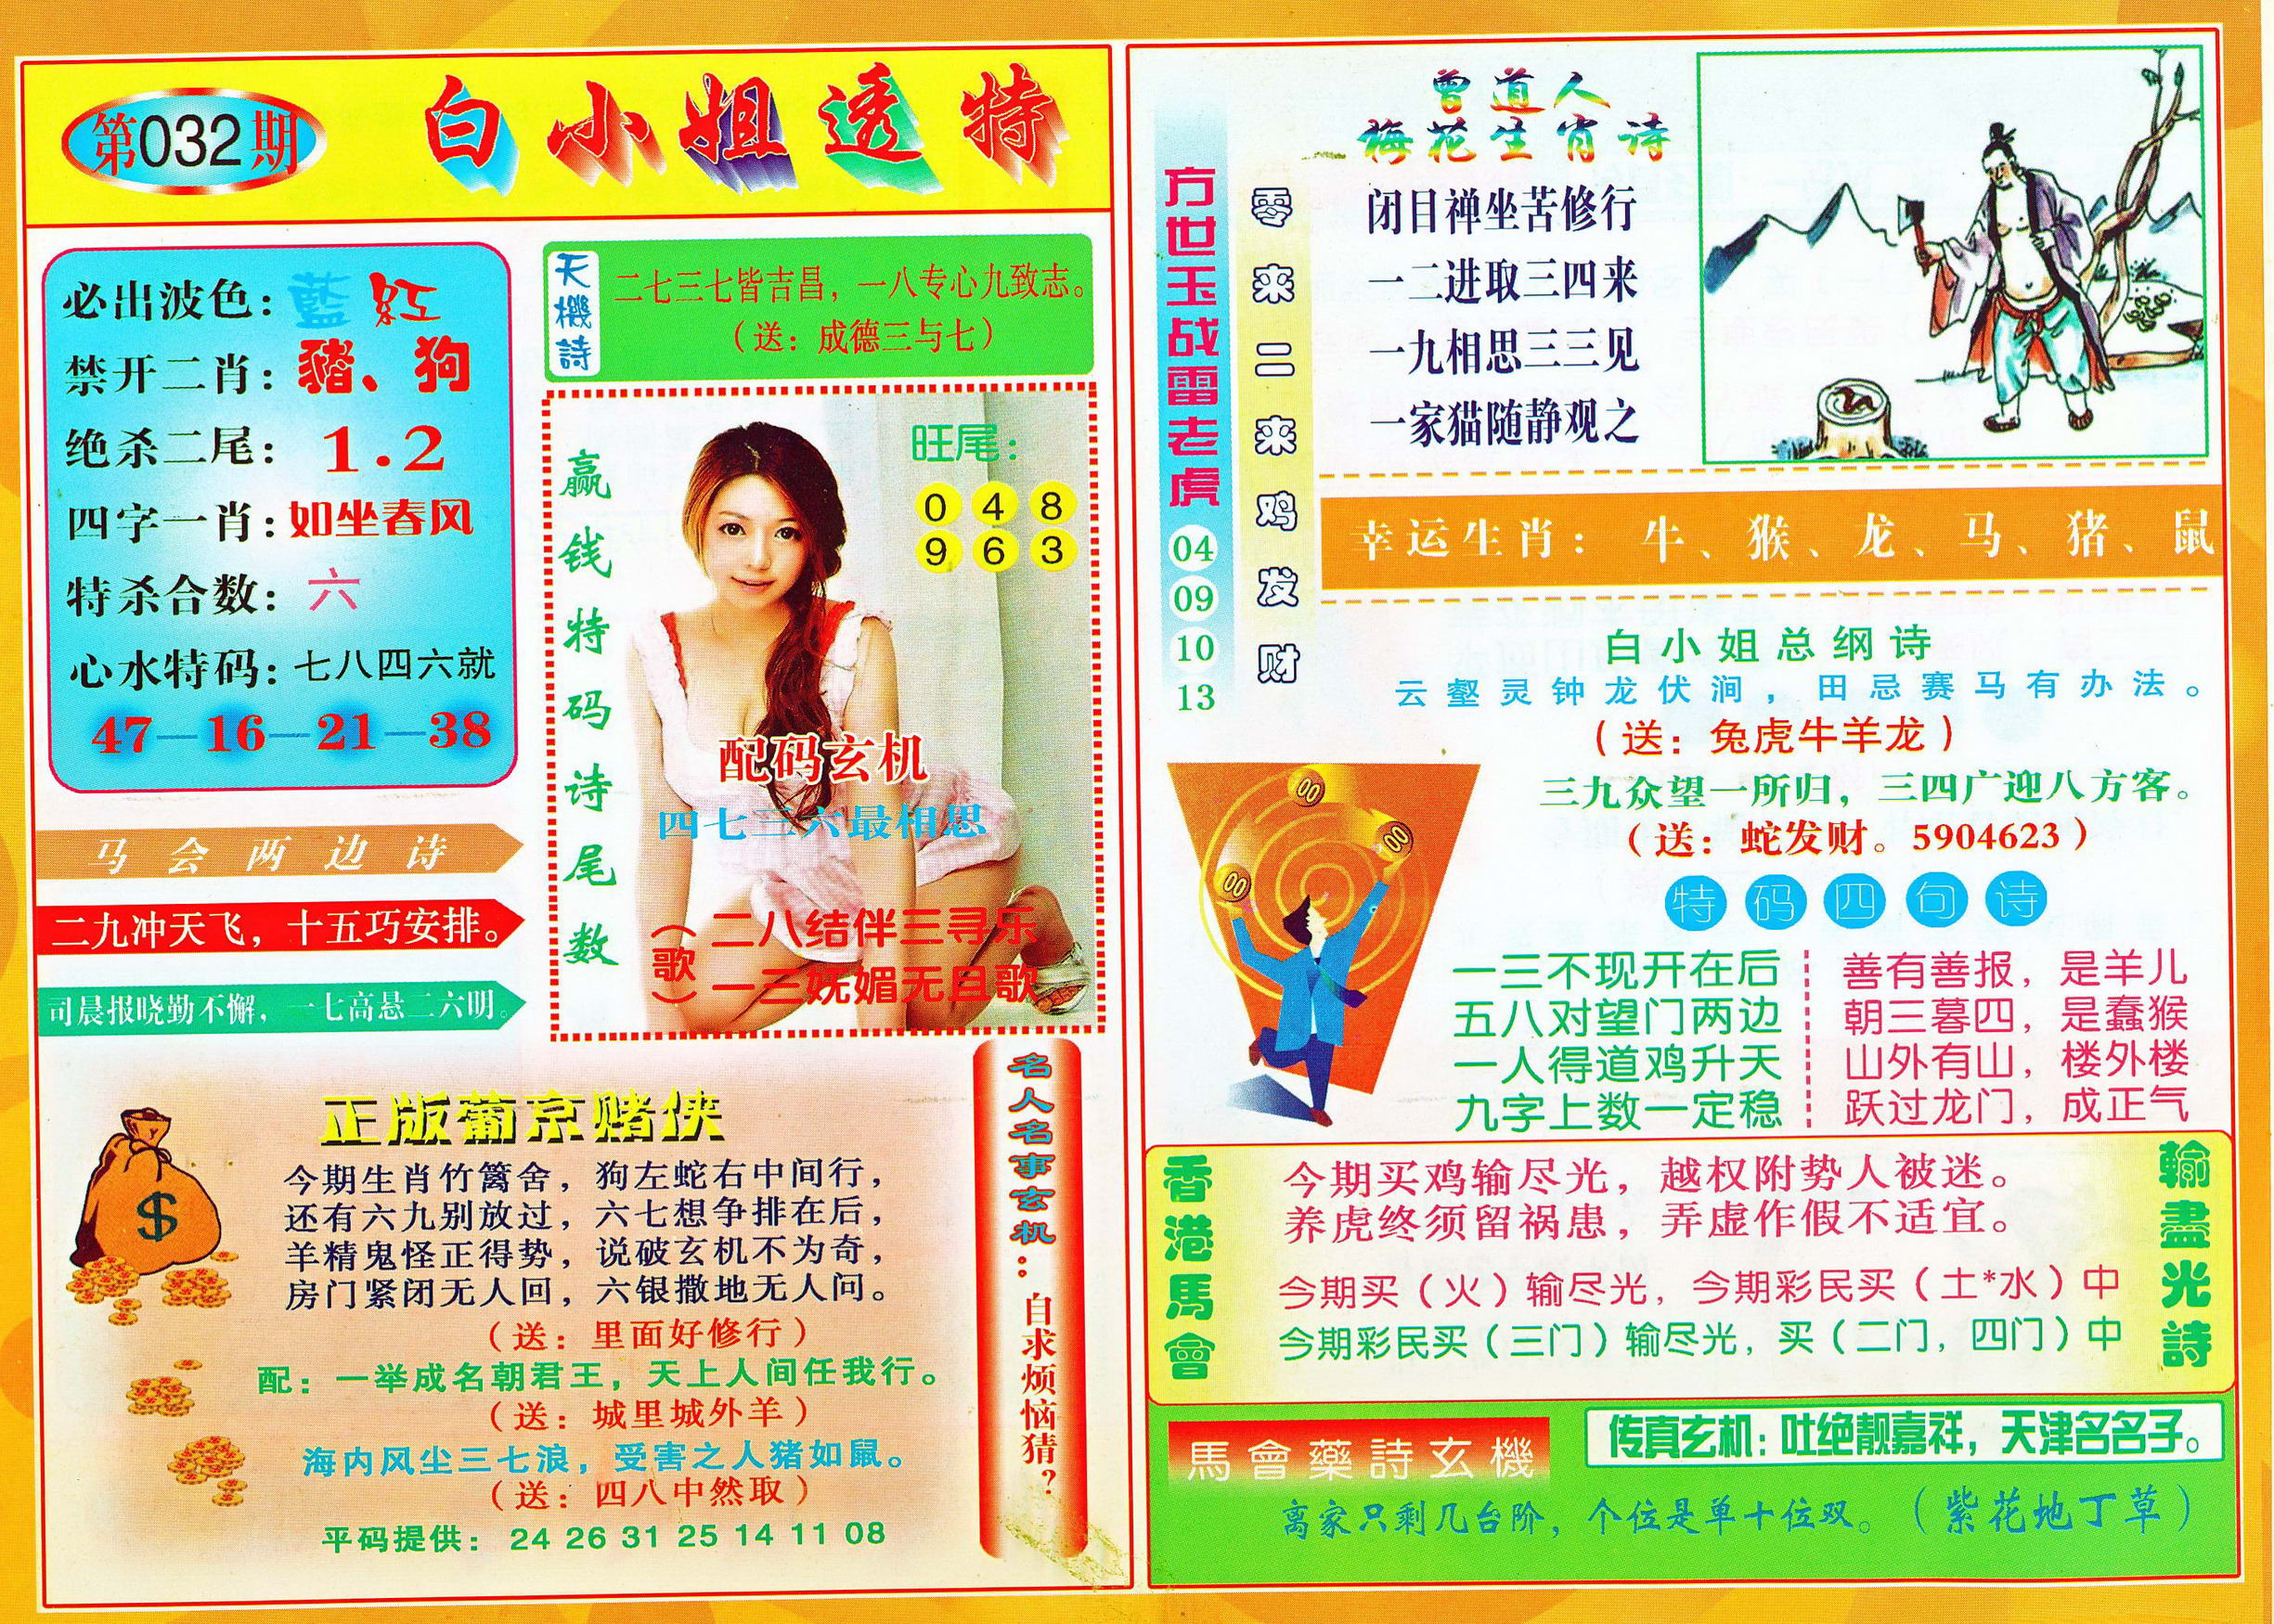 第032期
白小姐透特
必出波色：藍 紅
禁开二肖：豬、狗
绝杀二尾：1.2
四字一肖：如坐春风
特杀合数：六
心水特码：七八四六就
47—16—21—38
马会两边诗
二九冲天飞，十五巧安排。
司晨报晓勤不懈，一七高悬二六明。
天機詩
二七三七皆吉昌，一八专心九致志。
（送：成德三与七）
赢钱特码诗尾数
旺尾：
0 4 8
9 6 3
配码玄机
四七三六最相思
（歌）
二八结伴三寻乐
一三妩媚无且歌
正版葡京赌侠
今期生肖竹篱舍，狗左蛇右中间行，
还有六九别放过，六七想争排在后，
羊精鬼怪正得势，说破玄机不为奇，
房门紧闭无人回，六银撒地无人问。
（送：里面好修行）
配：一举成名朝君王，天上人间任我行。
（送：城里城外羊）
海内风尘三七浪，受害之人猪如鼠。
（送：四八中然取）
平码提供：24 26 31 25 14 11 08
$
名人名事玄机：自求烦恼猜？
方世玉战雷老虎
04
09
10
13
零来二来鸡发财
曾道人
梅花生肖诗
闭目禅坐苦修行
一二进取三四来
一九相思三三见
一家猫随静观之
幸运生肖：牛、猴、龙、马、猪、鼠
白小姐总纲诗
云壑灵钟龙伏涧，田忌赛马有办法。
（送：兔虎牛羊龙）
三九众望一所归，三四广迎八方客。
（送：蛇发财。5904623）
00
00
00
特码四句诗
一三不现开在后
五八对望门两边
一人得道鸡升天
九字上数一定稳
善有善报，是羊儿
朝三暮四，是蠢猴
山外有山，楼外楼
跃过龙门，成正气
香港馬會
今期买鸡输尽光，越权附势人被迷。
养虎终须留祸患，弄虚作假不适宜。
今期买（火）输尽光，今期彩民买（土*水）中
今期彩民买（三门）输尽光，买（二门，四门）中
輸盡光詩
馬會藥詩玄機
传真玄机：吐绝靓嘉祥，天津名名子。
离家只剩几台阶，个位是单十位双。（紫花地丁草）